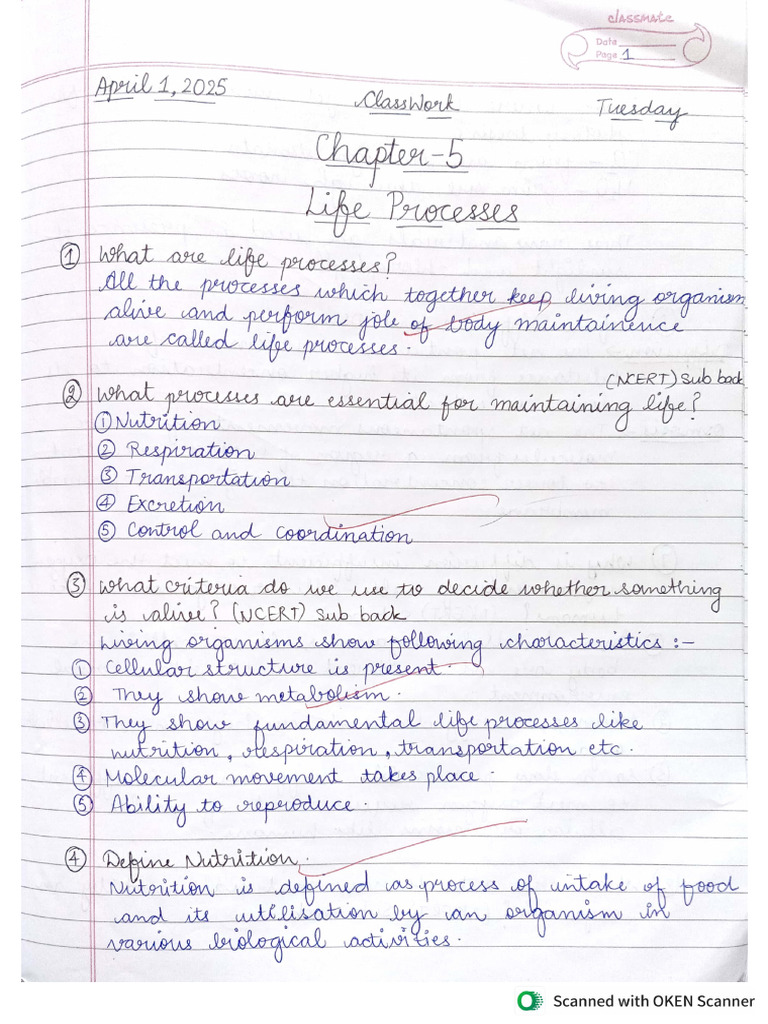 classmate
Date
Page 1
April 1, 2025 ClassWork Tuesday
Chapter-5
Life Processes
① What are life processes?
All the processes which together keep living organism
alive and perform jole of body maintainence
are called life processes.
(NCERT) Sub back
② What processes are essential for maintaining life?
① Nutrition
② Respiration
③ Transportation
④ Excretion
⑤ Control and Coordination
③ What criteria do we use to decide whether something
is alive? (NCERT) Sub back
Living organisms show following characteristics :-
① Cellular structure is present.
② They show metabolism.
③ They show fundamental life processes like
nutrition, respiration, transportation etc.
④ Molecular movement takes place.
⑤ Ability to reproduce.
④ Define Nutrition.
Nutrition is defined as process of intake of food
and its utilisation by an organism in
various biological activities.
Scanned with OKEN Scanner